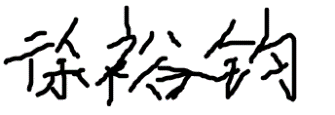 徐裕钧